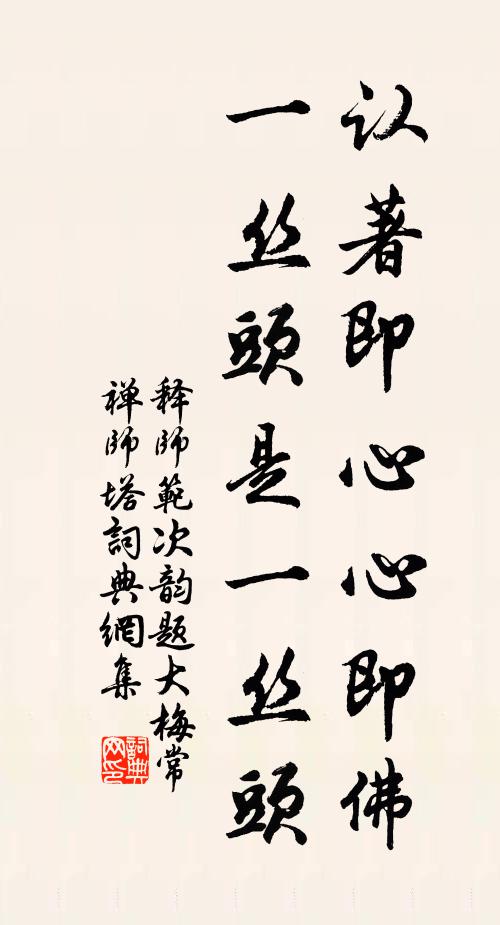 认著即心心即佛
一丝頭是一丝頭
释师範次韵题大梅常
禅师塔詞典網集
詞典